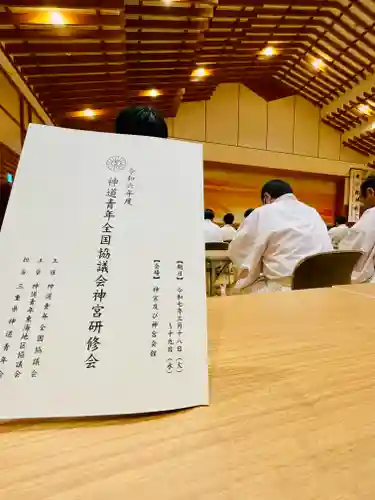 令和六年度
神道青年全国協議会神宮研修会
【期日】 令和七年三月十八日(火)
～十九日(水)
【会場】 神宮及び神宮会館
主催 神道青年全国協議会
主管 神道青年東海地区協議会
担当 三重県神道青年会